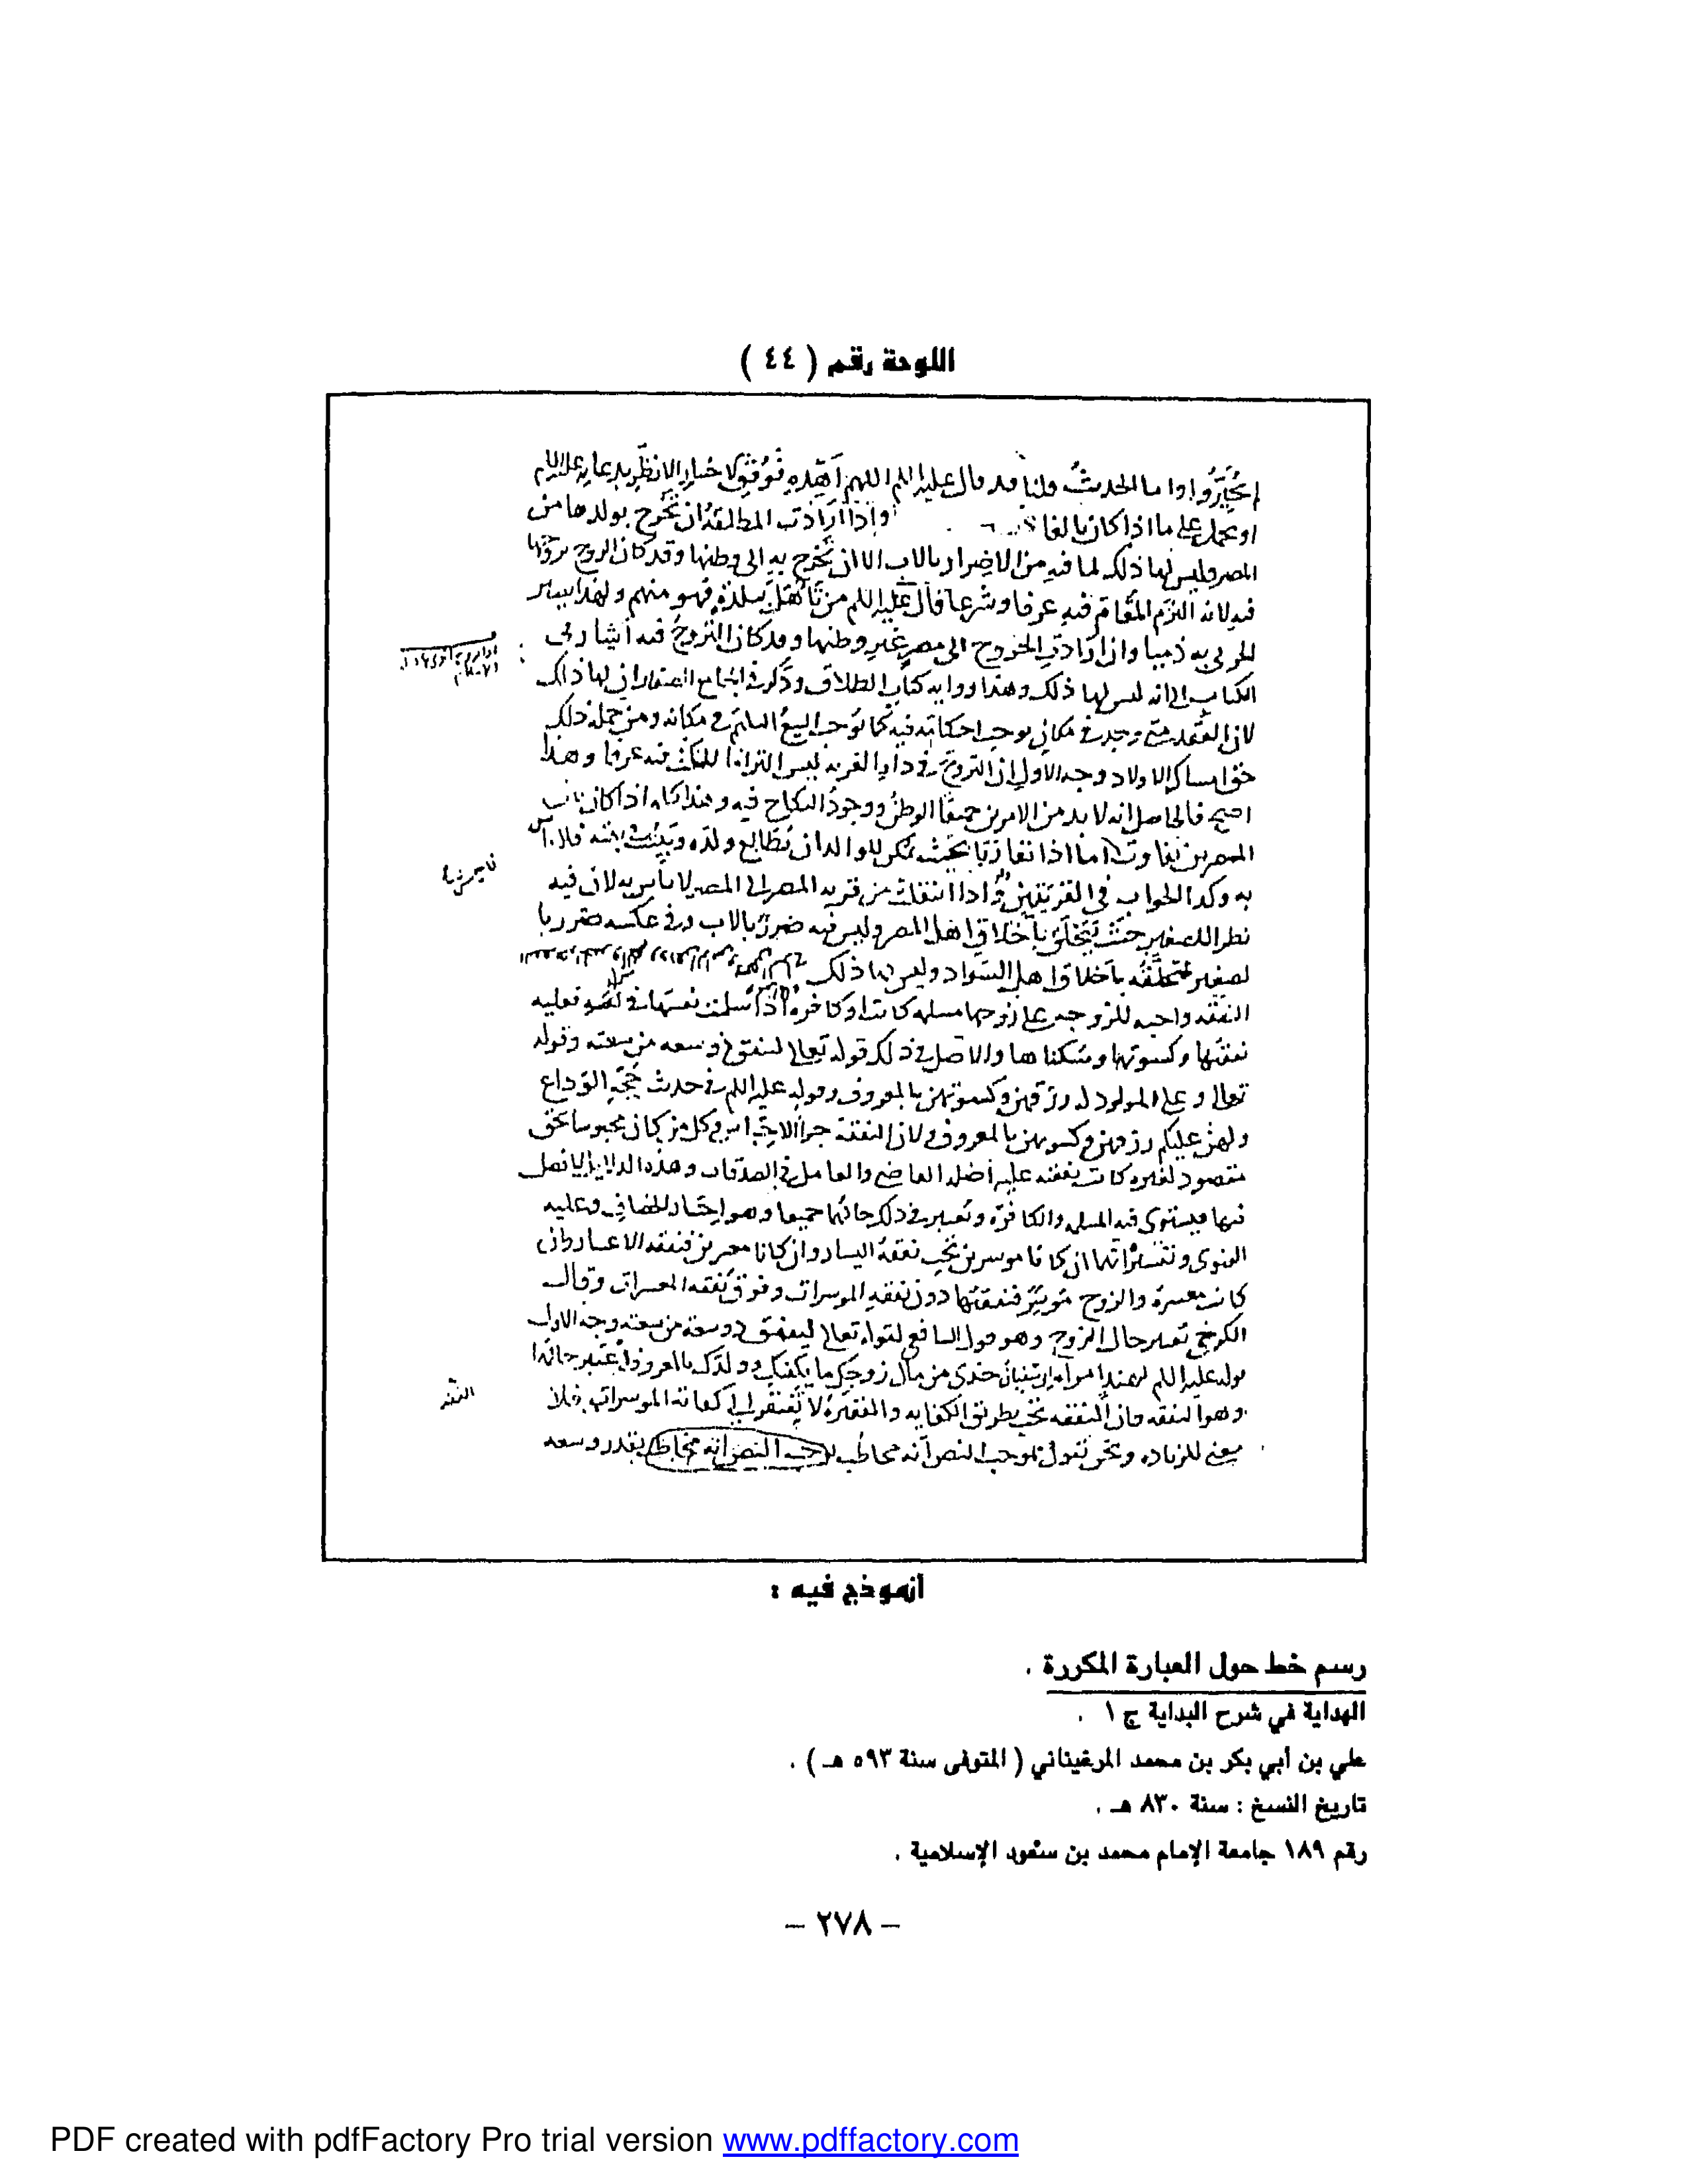 اللوحة رقم ( ٤٤ )
خيروا واما الحديث قلنا قد قال عليه السلم اللهم اهده فوفق لاختيار الانظر بدعايه عليه السلام
او يحمل على ما اذا كان بالغا واذا ارادت المطلقة ان تخرج بولدها من
المصر فليس لها ذلك لما فيه من الاضرار بالاب الا ان تخرج به الى وطنها وقد كان الزوج تزوجها
فيه لانه التزم المقام فيه عرفا وشرعا قال عليه السلم من تاهل ببلدة فهو منهم ولهذا يصير
الحربي به ذميا وان ارادت الخروج الى مصر غير وطنها وقد كان التزوج فيه اشار في
الكتاب الى انه ليس لها ذلك وهذا رواية كتاب الطلاق وذكر في الجامع الصغير ان لها ذلك
لان العقد متى وجد في مكان يوجب احكامه فيه كما يوجب البيع التسليم في مكانه ومن جملة ذلك
حق امساك الاولاد وجه الاول ان التزوج في دار الغربة ليس التزاما للمكث فيه عرفا وهذا
اصح فالحاصل انه لا بد من الامرين جميعا الوطن ووجود النكاح فيه وهذا كله اذا كان بين
المصرين تفاوت اما اذا تقاربا بحيث يمكن للوالد ان يطالع ولده ويبيت في بيته فلا باس
به وكذا الجواب في القريتين ولو اذا انتقلت من قرية المصر الى المصر لا باس به لان فيه
نظرا للصغير حيث يتخلق باخلاق اهل المصر وليس فيه ضرر بالاب وفي عكسه ضرر با
لصغير لتخلقه باخلاق اهل السواد وليس لها ذلك
النفقة واجبة للزوجة على زوجها مسلمة كانت او كافرة اذا سلمت نفسها في منزله فعليه
نفقتها وكسوتها وسكناها والاصل في ذلك قوله تعالى لينفق ذو سعة من سعته وقوله
تعالى وعلى المولود له رزقهن وكسوتهن بالمعروف وقوله عليه السلم في حديث حجة الوداع
ولهن عليكم رزقهن وكسوتهن بالمعروف ولان النفقة جزاء الاحتباس وكل من كان محبوسا بحق
مقصود لغيره كانت نفقته عليه اصله القاضي والعامل في الصدقات وهذه الدلايل لا فصل
فيها فيستوى فيه المسلمة والكافرة وتعتبر في ذلك حالهما جميعا وهو اختيار الخصاف وعليه
الفتوى وتفسيرها انهما ان كانا موسرين تجب نفقة اليسار وان كانا معسرين فنفقة الاعسار وان
كانت معسرة والزوج موسر فنفقتها دون نفقة الموسرات وفوق نفقة المعسرات وقال
الكرخي تعتبر حال الزوج وهو قول الشافعي لقوله تعالى لينفق ذو سعة من سعته وجه الاول
قوله عليه السلم لهند امراة ابي سفيان خذي من مال زوجك ما يكفيك وولدك بالمعروف اعتبر حالها
وهو النفقة فان النفقة تجب بطريق الكفاية والفقيرة لا تفتقر الى كفاية الموسرات فلا
معنى للزيادة ونحن نقول بموجب النص انه مخاطب بموجب النص انه مخاطب بقدر وسعه
النفقة
أنموذج فيه :
رسم خط حول العبارة المكررة .
الهداية في شرح البداية ج ١ .
علي بن أبي بكر بن محمد المرغيناني ( المتوفى سنة ٥٩٣ هـ ) .
تاريخ النسخ : سنة ٨٣٠ هـ .
رقم ١٨٩ جامعة الإمام محمد بن سعود الإسلامية .
– ٢٧٨ –
PDF created with pdfFactory Pro trial version www.pdffactory.com